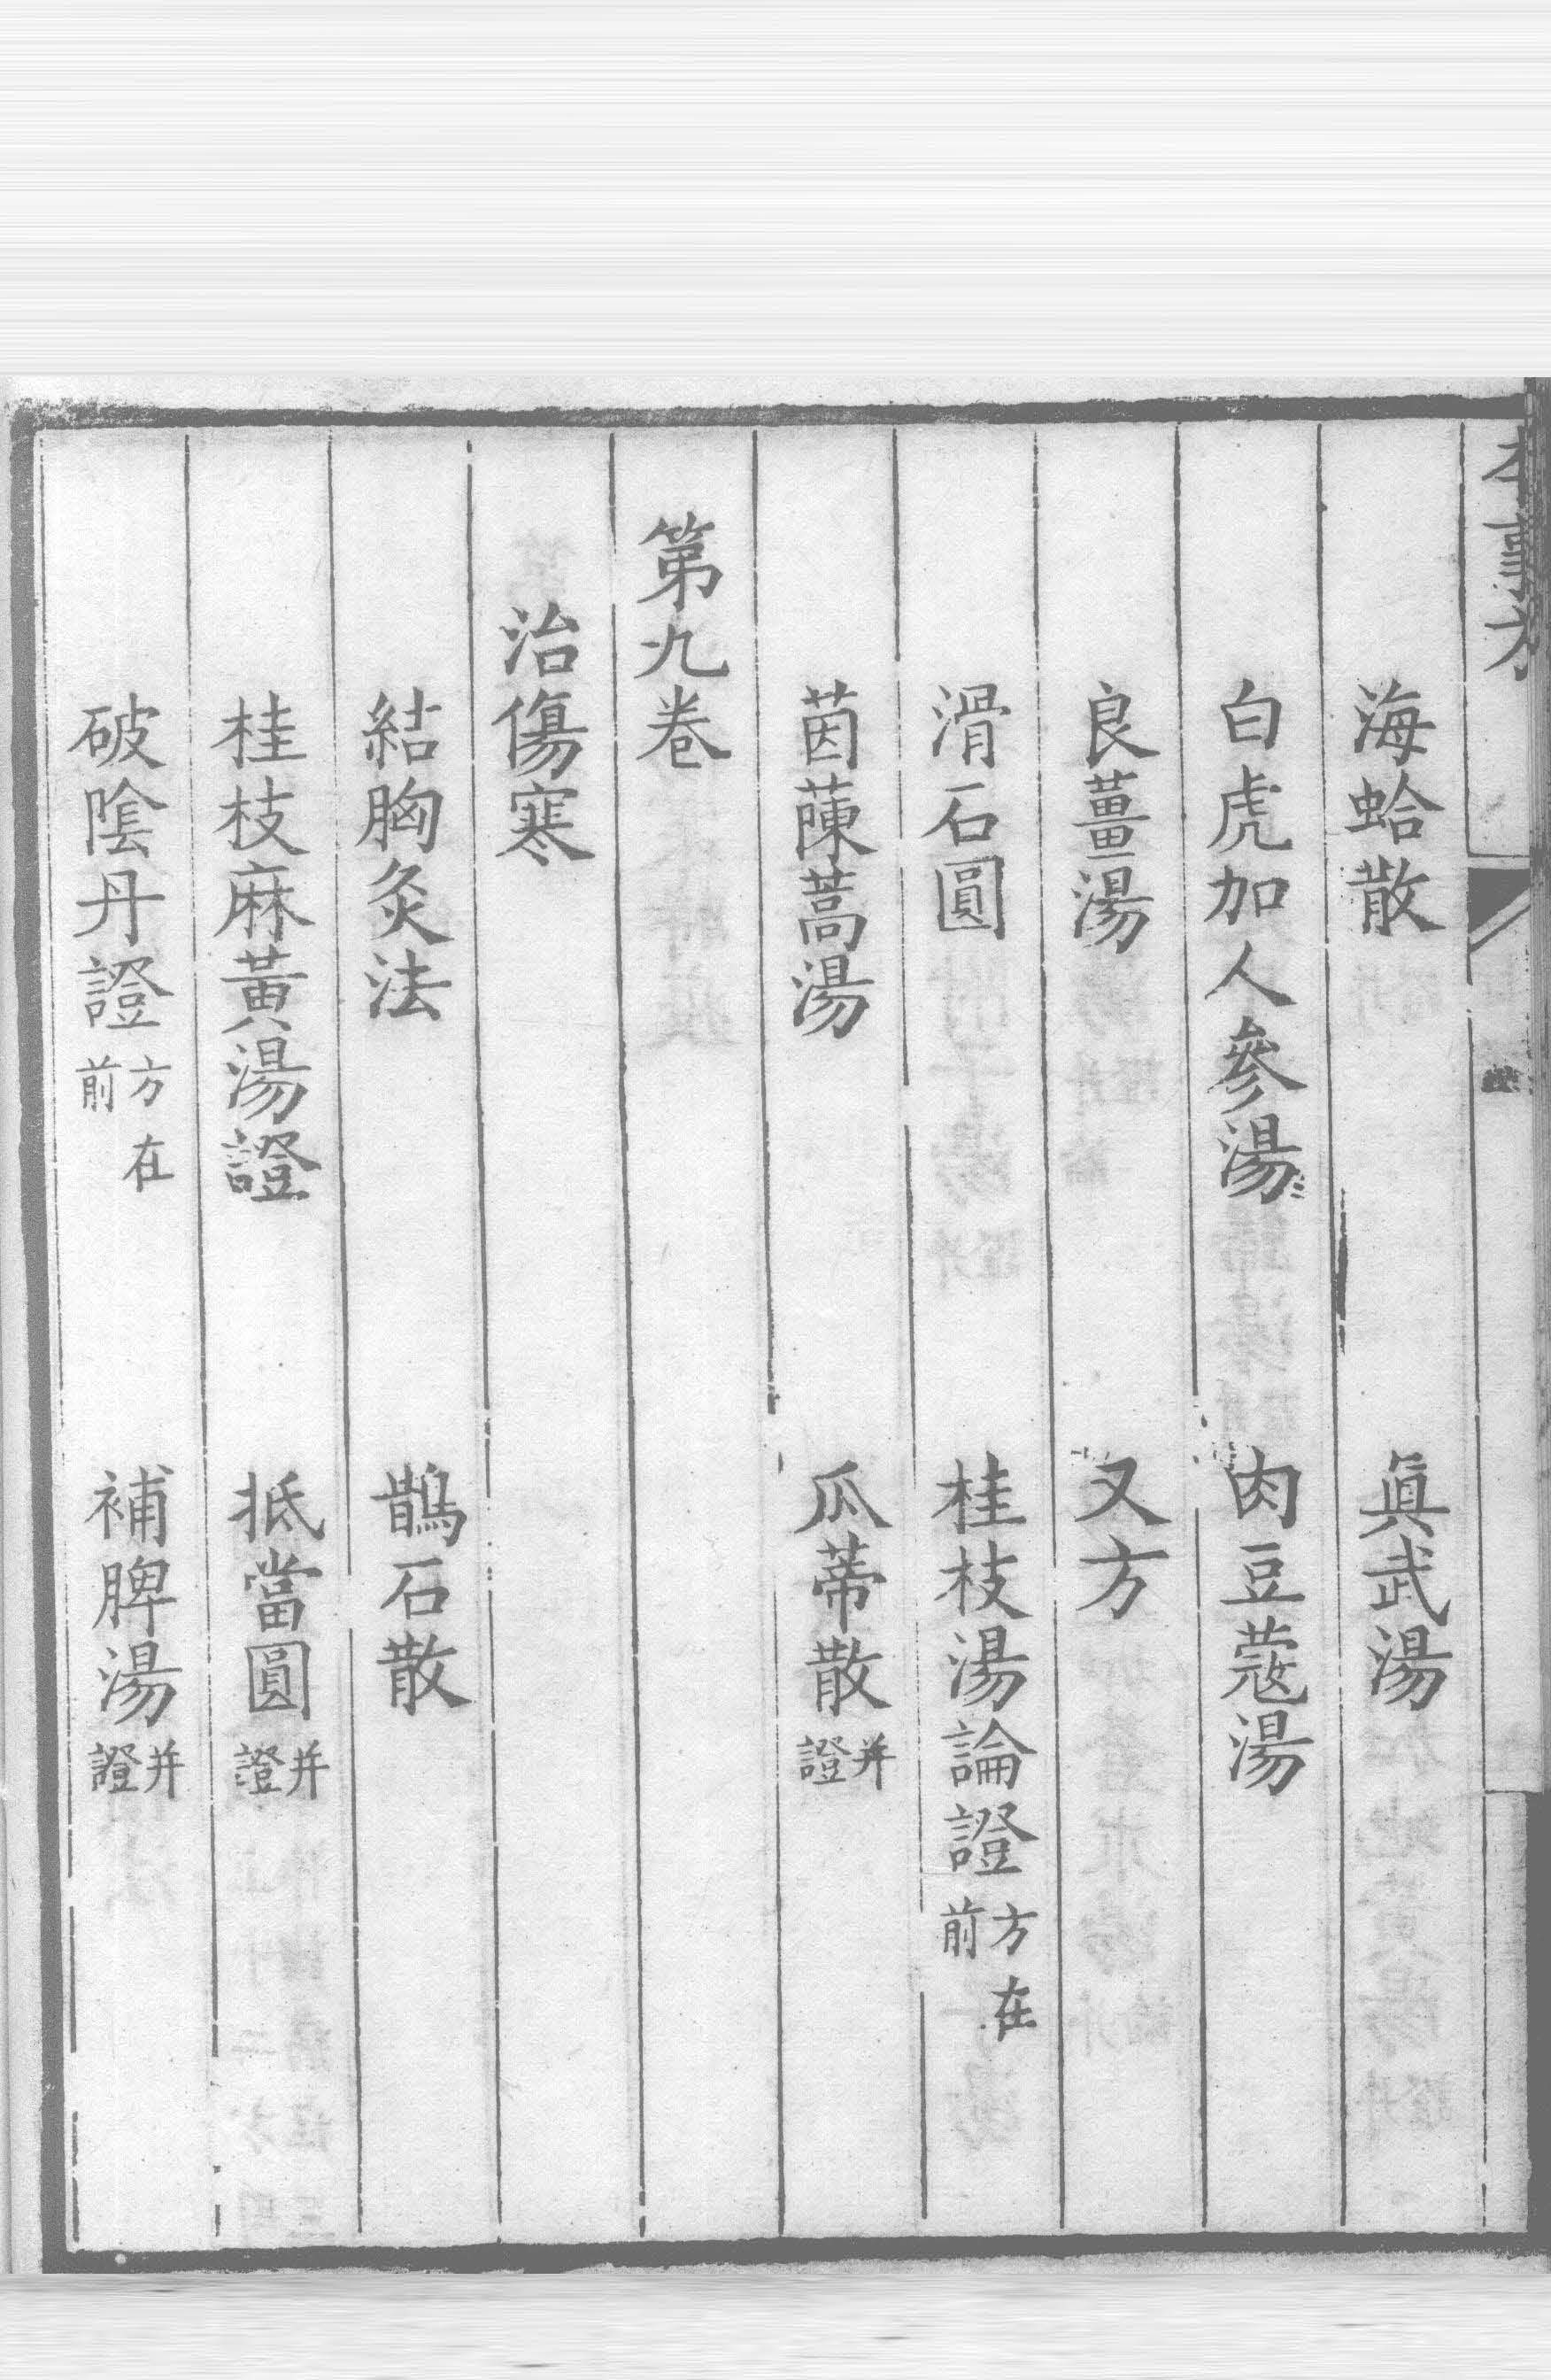 本事方
海蛤散　眞武湯
白虎加人參湯　肉豆蔻湯
良薑湯　又方
滑石圓　桂枝湯論證方在前
茵蔯蒿湯　瓜蒂散并證
第九卷
治傷寒
結胸灸法　鵲石散
桂枝麻黃湯證　抵當圓并證
破陰丹證方在前　補脾湯并證